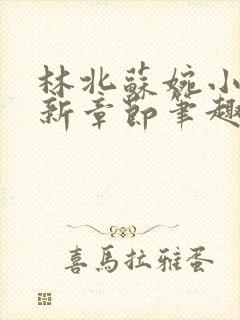 林北蘇婉小
新章節筆趣
喜馬拉雅蛋